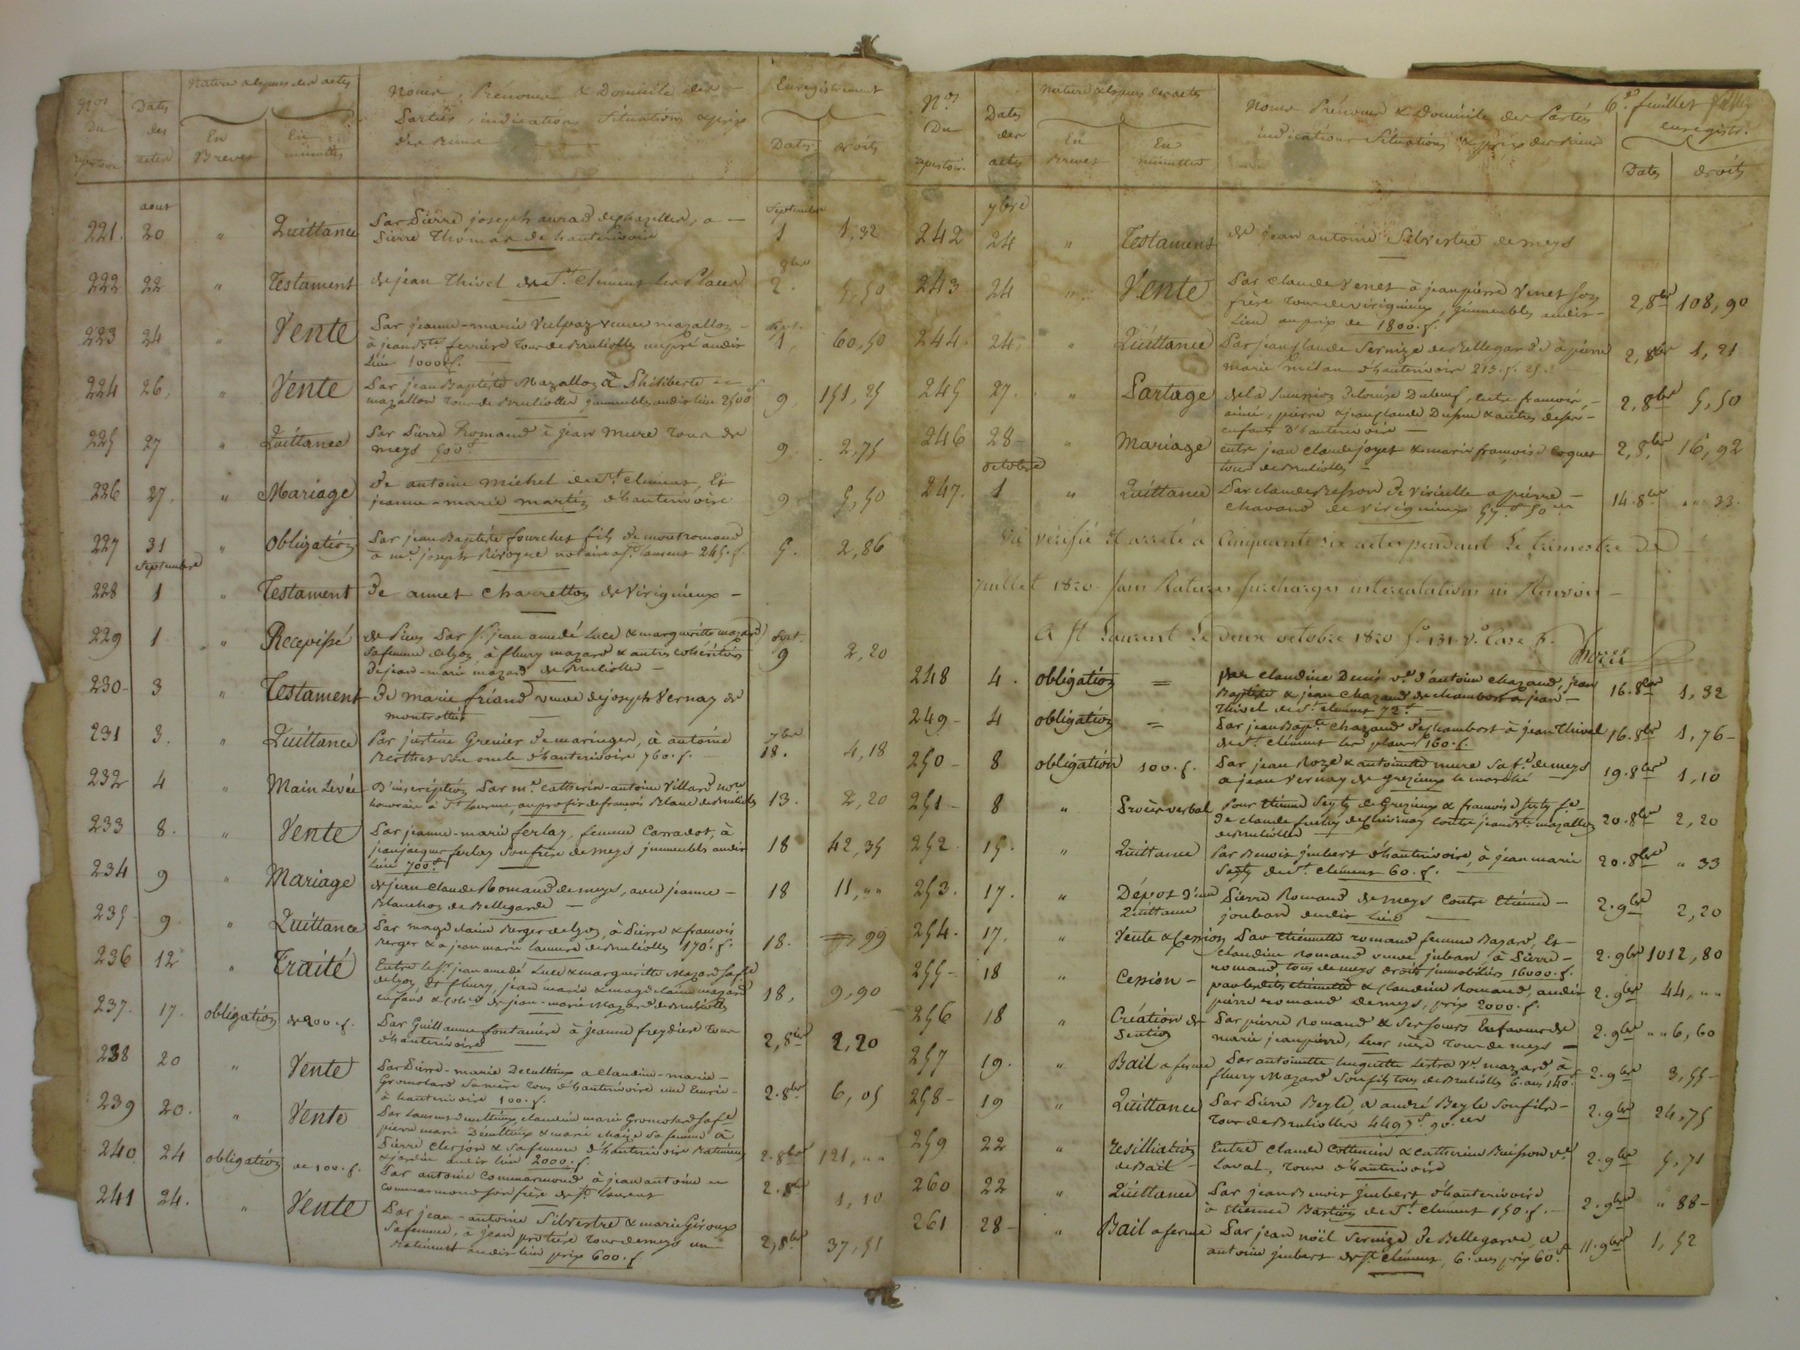 Nos
Du
repertoire
Dates
des
actes
Nature & espèces des actes
En
Brevet
En
minuttes
Noms, Prénoms & Domicile des
Parties, indications Situations & prix
des Biens
Enregistrement
Dates
droits
aout
221. 20 " Quittance Par Pierre joseph aurad de chazelles, a
Pierre Thomas de hauterivoire
September 1 1,32
222 22 " Testament de jean Thivel de St. Clément les Places
8bre 2. 5,50
223 24 " Vente Par jeanne-marie Vulpaz veuve mazallon
à jean Bte ferrière tous de Brullioles un pré audit
lieu 1000.f.
sept. 1, 60,50
224 26, " Vente Par jean Baptiste Mazallon à Philiberte
mazallon tous de Brullioles jmmeubles audit lieu 2500 f
9 151,25
225 27 " Quittance Par Pierre Romand à jean Mure tous de
meys 500 f
9. 2,75
226 27. " Mariage De antoine Michel de St. clement, Et
jeanne-marie martin d'hauterivoire
9 5,50
227 31 " Obligation Par jean Baptiste fourchet fils de montromand
à me. joseph Rivoyre notaire a St. laurent 245.f.
9. 2,86
Septembre
228 1 " Testament De annet Charretton de Virigneux
229 1 " Recepissé de Pieces Par Sr. jean amedé Luce & margueritte mazard
sa femme de lyon à fleury mazard & autres cohéritiers
De jean-marie mazard de Brulliolles
Sept. 9 2,20
230 3 " Testament De marie friand veuve de joseph Vernay de
montrottier
231 3. " Quittance Par justine Grenier de maringes, à antoine
Berthet son oncle d'hauterivoire 760.f.
7bre 18. 4,18
232 4 " Main Levée D'inscription Par me. catherin-antoine Villard nore
honoraire à St laurent, au profit de francois Blanc de Brulliolles
13. 2,20
233 8. " Vente Par jeanne-marie ferlay, femme Carradot, à
jean jacques ferlay son frère de meys jmmeubles audit
lieu 700 f
18 42,35
234 9 " Mariage de jean Claude Romand de meys, avec jeanne
Blanchon de Bellegarde
18 11, ""
235 9. " Quittance Par magdelaine Berger de lyon, à Pierre & francois
Berger & a jean marie
170.f.
18. 99
236 12 " Traité Entre le Sr. jean amedé Luce & margueritte Mazard sa fe
de lyon, Et fleury, jean marie & magdelaine mazard
enfans & de jean-marie Mazard de Brulliolles
18, 9,90
237. 17. obligation de 200.f. Par Guillaume fontaniere à jeanne freydiere tous
d'hauterivoire
2,8bre 2,20
238 20 " Vente Par Pierre-marie Decultieux a Claudine-marie
sa mère tous d'hauterivoire une Ecurie
à hauterivoire 100.f.
2.8bre 6,05
239 20. " Vente Par Laurent Decultieux, claudine marie sa fe
pierre marie Décultieux & marie sa femme à
Pierre Clerjon & sa femme d'hauterivoire Batiment
& jardin audit lieu 2000.f.
2.8bre 121, ""
240 24 obligation de 100.f. Par antoine Commarmond à jean antoine
commarmond son frère de St laurent
2.8bre 1,10
241 24. " Vente Par jean-antoine Silvestre & marie Giroux
sa femme, à jean protière tous de meys un
Batiment audit lieu prix 600.f
2,8bre 37,51
6e feuillet
Nos
Du
repertoire
Dates
des
actes
Nature & espèces des actes
En
Brevet
En
minuttes
Noms Prénoms & Domicile des Parties
indications Situations & prix des Biens
enregistr.
Dates
droits
7bre
242 24 " Testament de jean antoine Silvestre de meys
243 24 " Vente Par Claude Venet à jean pierre Venet son
frère tous de virigneux, jmmeubles audit
Lieu au prix de 1800.f.
2,8bre 108,90
244. 24. " Quittance Par jean claude Sernize de Bellegarde à pierre
marie milan d'hauterivoire 215.f.
2,8bre 1,21
245 27. " Partage de la succession Dubeuf, entre francois,
aimé, pierre & jean claude & autres
enfans d'hauterivoire
2,8bre 5,50
246 28 " Mariage entre jean Claude joyet & marie francoise Coquet
tous de Brulliolles
2,8bre 16,92
octobre
247. 1 " Quittance Par claude Besson de Viricelle a pierre
Chavand de Virigneux 57 f 50 c
14.8bre "" 33.
Vu vérifié & arreté à Cinquante six actes pendant le trimestre de
juillet 1820 sans Ratures surcharges intercalations ni Renvois
A St Laurent le deux octobre 1820 fo. 131. Vo. Case 8.
248 4. obligation = par claudine Denis ve. d'antoine chazaud, jean
Baptiste & jean Chazaud de chambost à jean
Thivel de St. clement 72 f
16.8bre 1,32
249 4 obligation = Par jean Bapte. chazaud de Chambost à jean Thivel
de St. clément les places 160.f.
16.8bre 1,76
250 8 obligation 100.f. Par jean Roze & antoinette mure sa fe. de meys
a jean Vernay de Grezieux le marché
19.8bre 1,10
251 8 " Procès verbal Pour Etienne Seyty de Grezieux & francoise Seyty fe.
de claude ferlay de contre jean Bte mazallon
de Brulliolles
20.8bre 2,20
252 15. " Quittance Par Benoit jmbert d'hauterivoire à jean marie
de St. clément 60.f.
20.8bre " 33
253. 17. " Dépot d'une
Quittance Pierre Romand de meys Contre Etienne
joubard dudit lieu
2.9bre 2,20
254. 17. " Vente & Cession Par Etiennette romand femme Bazard, Et
claudine Romand veuve juban, à Pierre
romand tous de meys droits jmmobiliers 16000.f.
2.9bre 1012,80
255 18 " Cession par lesdites Etiennette & Claudine Romand, audit
pierre romand de meys, prix 2000.f.
2.9bre 44, ""
256 18 " Création de
Pention Par pierre Romand & ses sœurs En faveur de
marie jeanpierre, leur mère tous de meys
2.9bre "" 6,60
257 19. " Bail a ferme Par antoinette huguette Lestra ve. mazard, à
fleury Mazard son fils tous de Brulliolles 6. ans 140 f
2.9bre 3,55
258 19 " Quittance Par Pierre Beyle, a andré Beyle son fils
tous de Brulliolles 4495 f. 90 c
2.9bre 24,75
259 22 " Resilliation
de Bail Entre Claude Cottencin & catherine Buisson ve.
Laval, tous d'hauterivoire
2.9bre 5,71
260 22 " Quittance Par jean Benoit jmbert d'hauterivoire
à Etienne Bastion de St. clement 150.f.
2.9bre " 88
261 28 " Bail a ferme Par jean noël Sernize de Bellegarde, a
antoine jmbert de St clément, 6. ans prix 60 f.
11.9bre 1,52